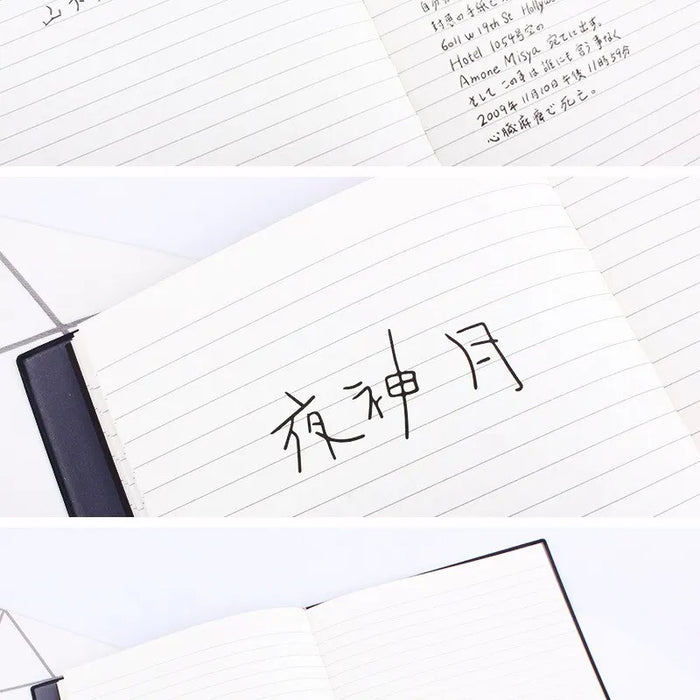 封悪の手紙と
6011 W 19th St Hollywo
Hotel 1054号室の
Amone Misya 宛てに出す。
そしてこの事は誰にも言う事なく
2009年11月10日午後11時59分
心臓麻痺で死亡。
夜神 月